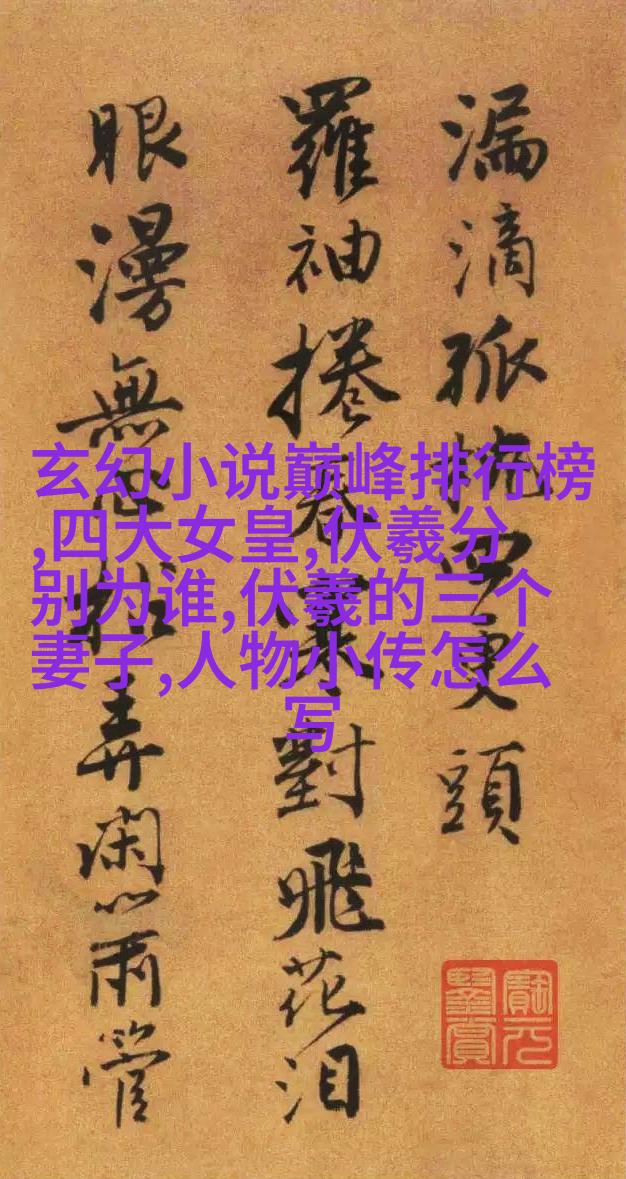 玄幻小说巅峰排行榜
,四大女皇,伏羲分
别为谁,伏羲的三个
妻子,人物小传怎么
写
漏滴孤四更頭
羅袖捲春寒對飛花泪
眼漫無心弄閑心管